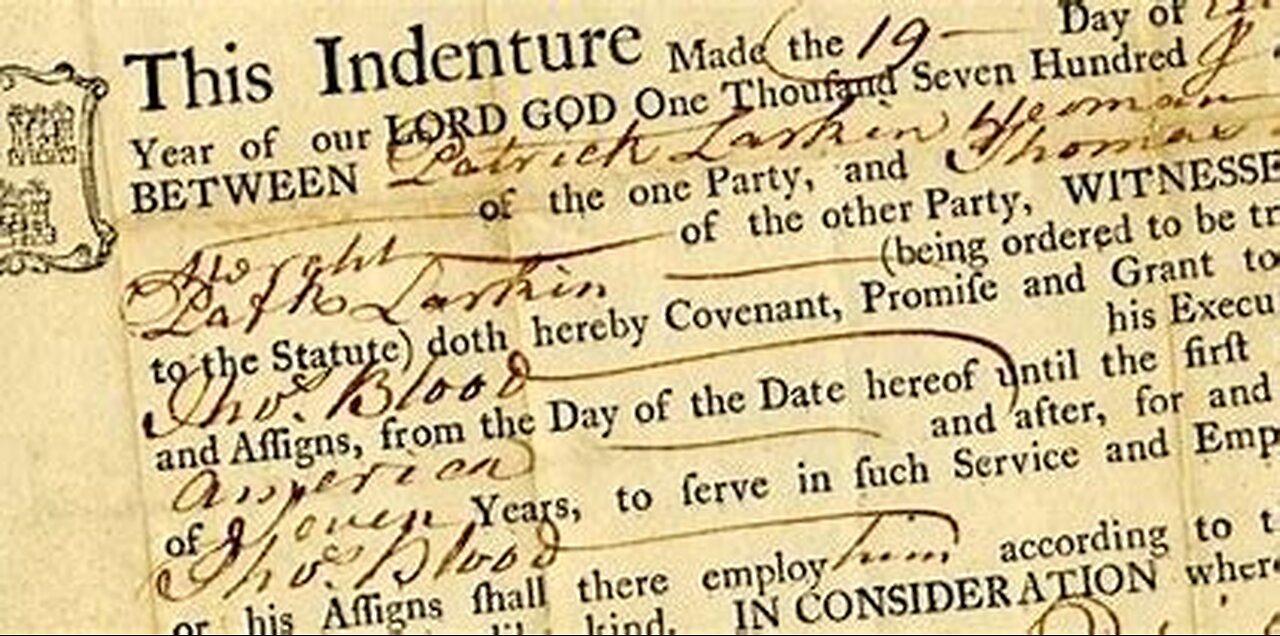 This Indenture Made the 19 Day of
Year of our LORD GOD One Thouſand Seven Hundred
BETWEEN Patrick Larkin Yeoman
of the one Party, and Thomas
of the other Party, WITNESSE
Patk Larkin (being ordered to be tr
to the Statute) doth hereby Covenant, Promiſe and Grant to
Thos. Blood his Execu
and Aſſigns, from the Day of the Date hereof until the firſt
America and after, for and
of Seven Years, to ſerve in ſuch Service and Emp
Thos. Blood
or his Aſſigns ſhall there employ him according to t
kind. IN CONSIDERATION where